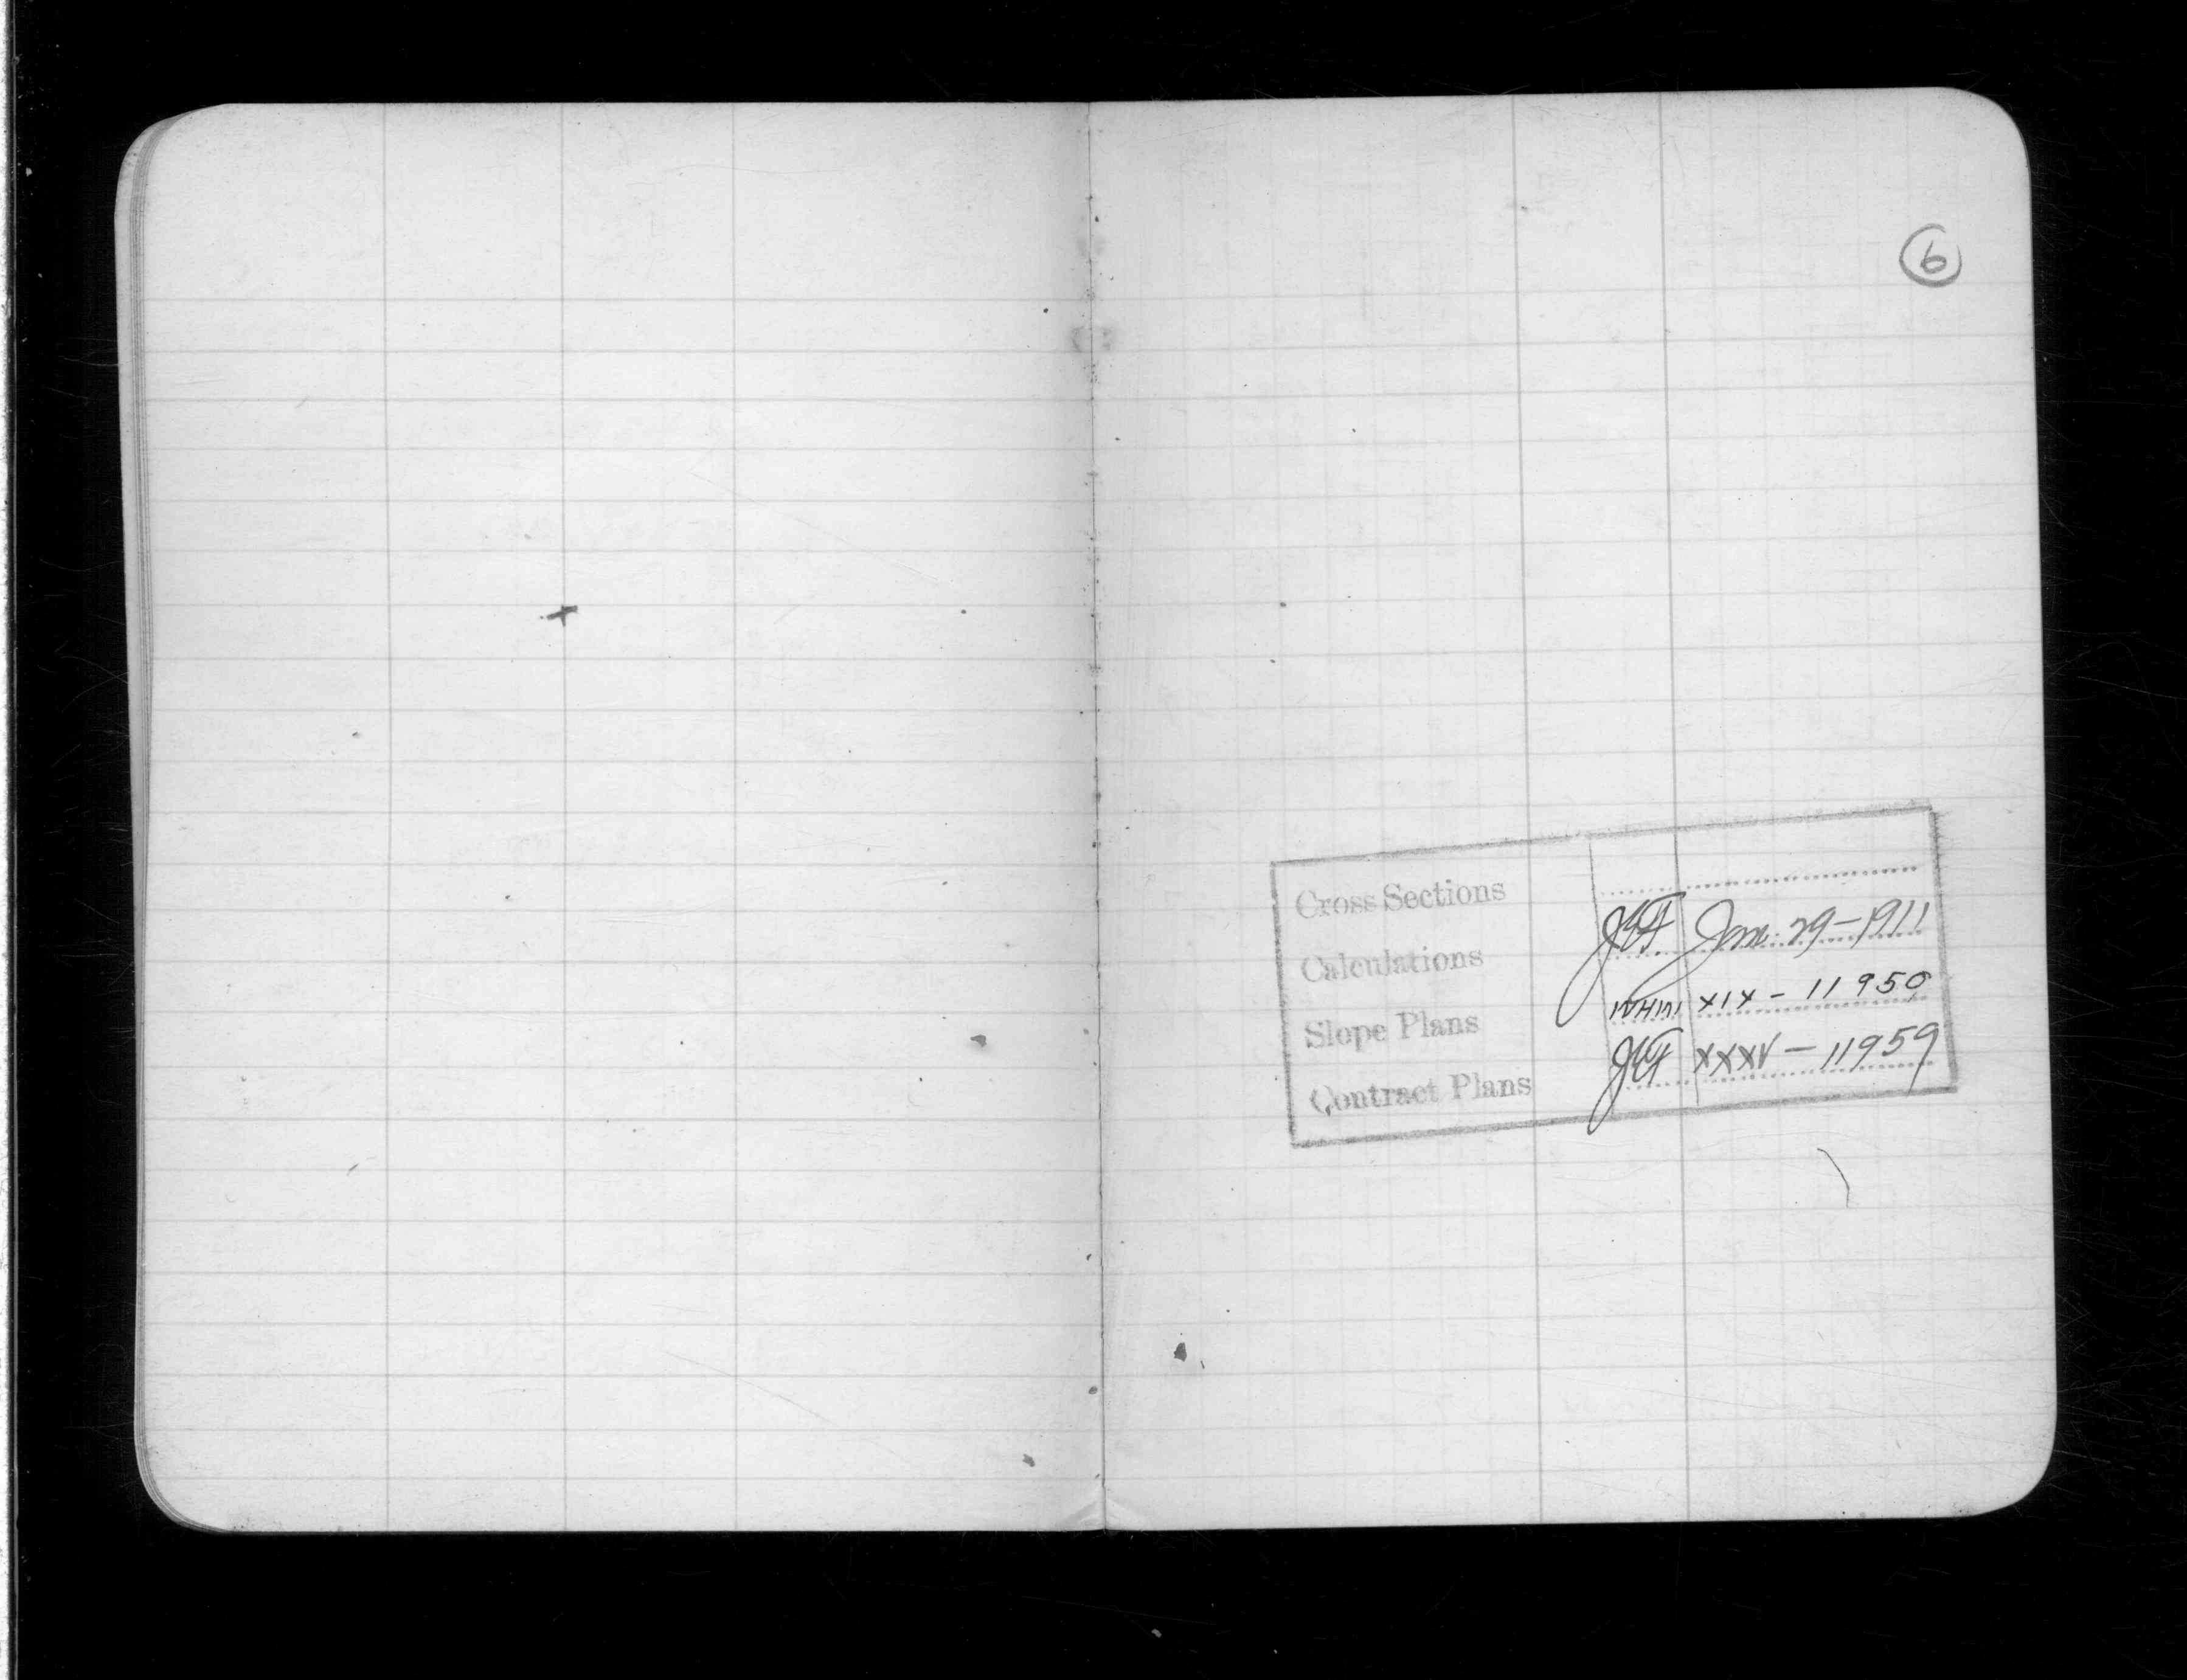 6
Cross Sections
Calculations Jan. 29-1911
Slope Plans XIX - 11950
Contract Plans XXXV - 11959